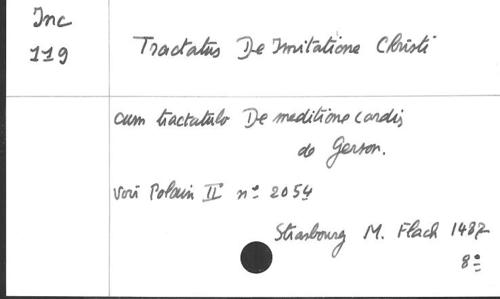 Inc
119
Tractatus De Imitatione Christi
cum tractatulo De meditione cordis
de Gerson.
Voir Polain II nº 2054
Strasbourg M. Flach 1487
8º